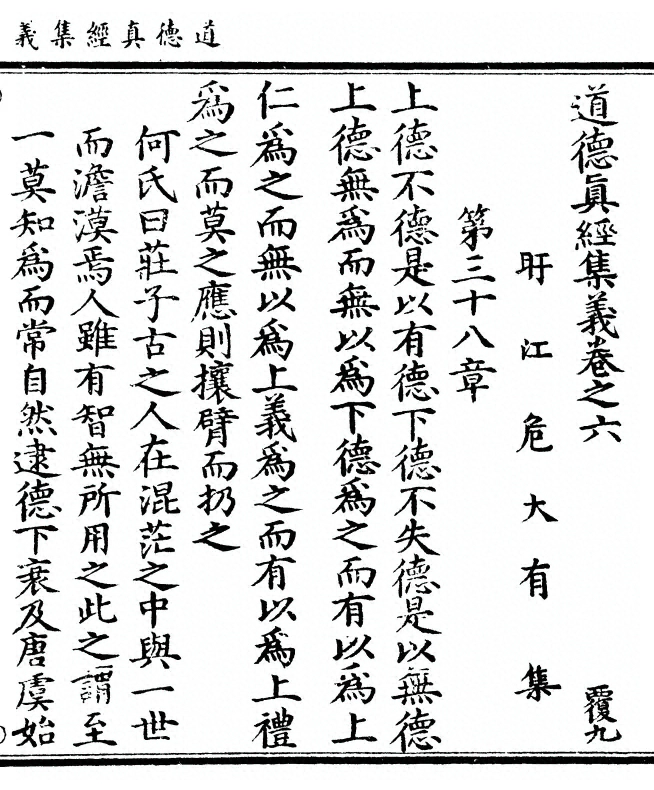 道德真經集義
道德眞經集義卷之六 覆九
盱江危大有集
第三十八章
上德不德是以有德下德不失德是以無德
上德無爲而無以爲下德爲之而有以爲上
仁爲之而無以爲上義爲之而有以爲上禮
爲之而莫之應則攘臂而扔之
何氏曰莊子古之人在混茫之中與一世
而澹漠焉人雖有智無所用之此之謂至
一莫知爲而常自然逮德下衰及唐虞始